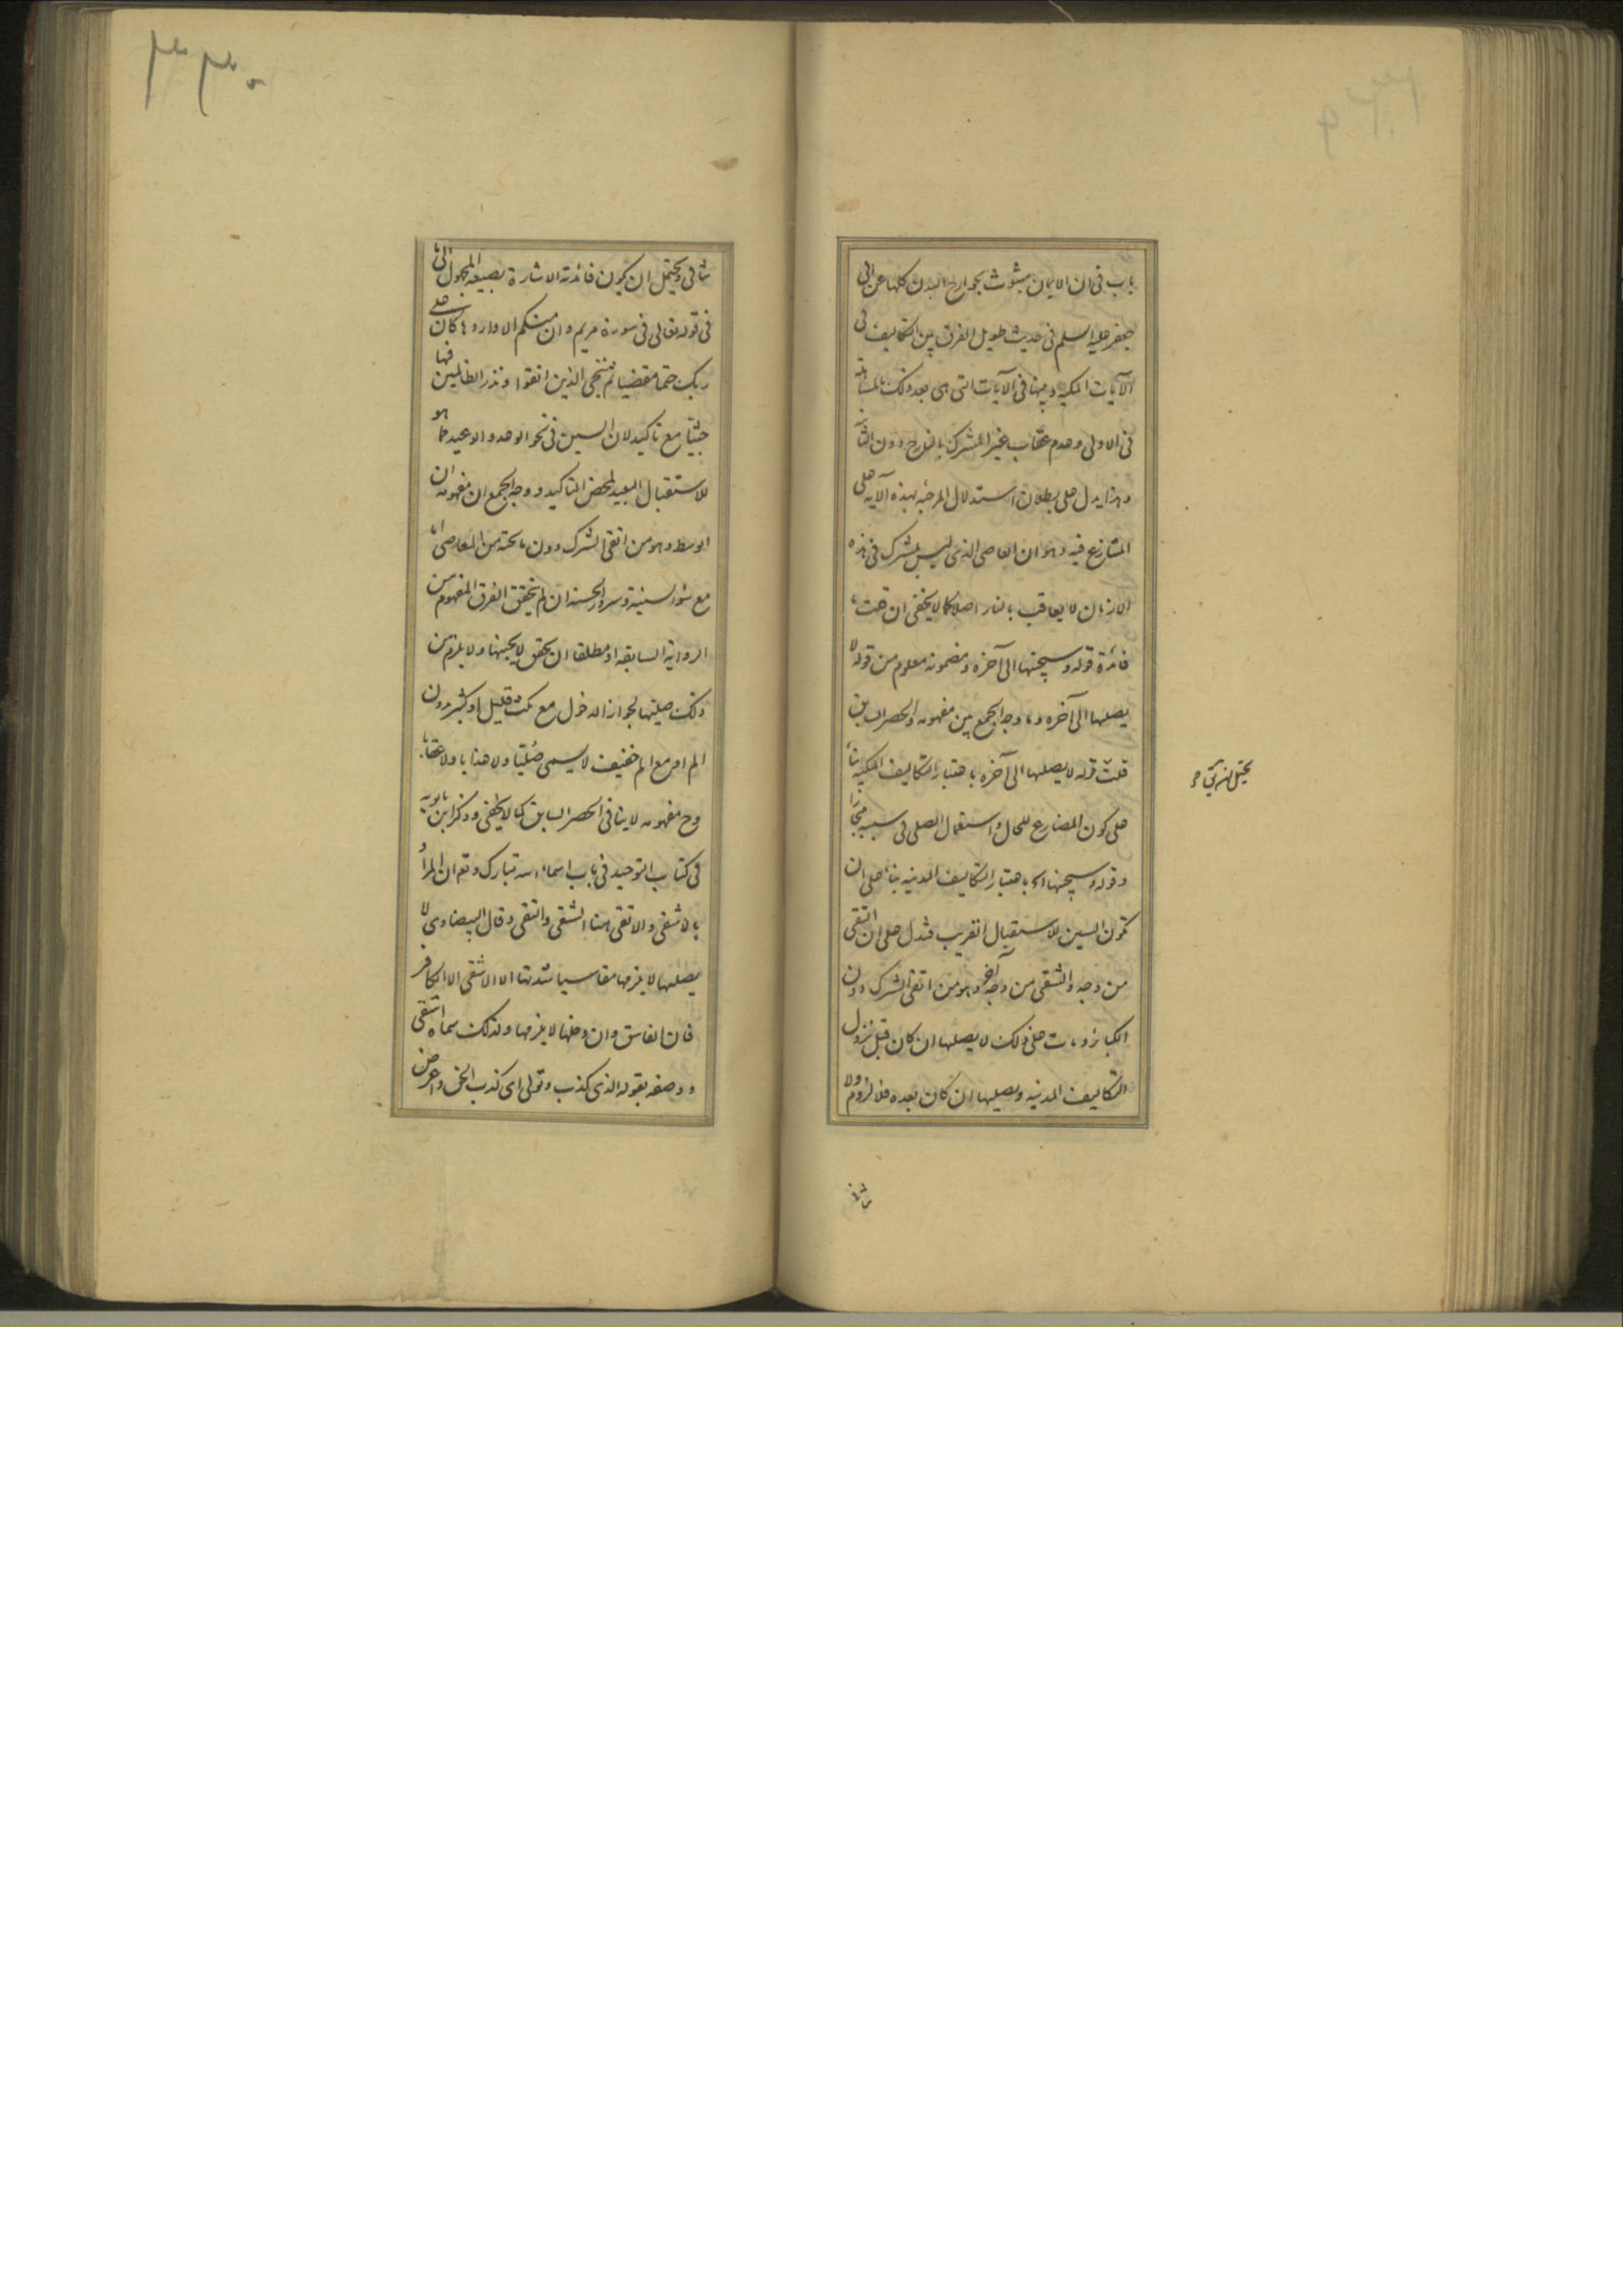 باب فی ان الایمان مبثوث بجوارح البدن کلها عن ابی
جعفر علیه السلم فی حدیث طویل الفرق بین التکالیف فی
الآیات المکیه و بینها فی الآیات التی هی بعد ذلک
فی الاولی وعدم عقاب غیر المشرک بالنار دون
وهذا یدل علی بطلان استدلال المرجئه بهذه الآیه علی
المتنازع فیه وهو ان العاصی الذی لیس بمشرک فی هذه
الازمان لا یعاقب بالنار اصلا کما لا یخفی ان قلت ما
فائدة قوله وسیجنبها الی آخره ومضمونه معلوم من قوله لا
یصلیها الی آخره وما وجه الجمع بین مفهومه والحصر السابق
قلت قوله لا یصلیها الی آخره باعتبار التکالیف المکیه بناء
علی کون المضارع للحال واستعمال الصلی فی سببه مجازا
وقوله وسیجنبها اه باعتبار التکالیف المدنیه بناء علی ان
تکون السین للاستقبال القریب فتدل علی ان التقی
من وجه والشقی من وجه آخر وهو من اتقی الشرک دون
الکبائر ومات علی ذلک لا یصلیها ان کان قبل نزول
التکالیف المدنیه ویصلیها ان کان بعده فلا لزوم ولا
شافی ویحتمل ان یکون فائدته الاشارة بصیغه المجهول الی ما
فی قوله تعالی فی سورة مریم وان منکم الا واردها کان علی
ربک حتما مقضیا ثم ننجی الذین اتقوا ونذر الظالمین فیها
جثیا مع تاکید لان السین فی نحو الوعد والوعید مما هو
للاستقبال البعید لمحض التاکید ووجه الجمع ان مفهومه ان
الوسط وهو من اتقی الشرک دون ما تحته من المعاصی اما
مع سوء السیئة وسرور الحسنه ان لم یتحقق الفرق المفهوم من
الروایه السابقه او مطلقا ان تحقق لا یجنبها ولا یلزم من
ذلک صلیها لجواز الدخول مع مکث قلیل او کثیر بدون
الم او مع الم خفیف لا یسمی صُلیّا ولا عذابا ولا عقابا
وح مفهومه لا ینافی الحصر السابق کما لا یخفی وذکر ابن بابویه
فی کتاب التوحید فی باب اسماء الله تبارک وتعم ان المراد
بالاشقی والاتقی هنا الشقی والتقی وقال البیضاوی لا
یصلیها لا یلزمها مقاسیا شدتها الا الاشقی الا الکافر
فان الفاسق وان دخلها لا یلزمها ولذلک سماه اشقی
ووصفه بقوله الذی کذب وتولی ای کذب الحق واعرض